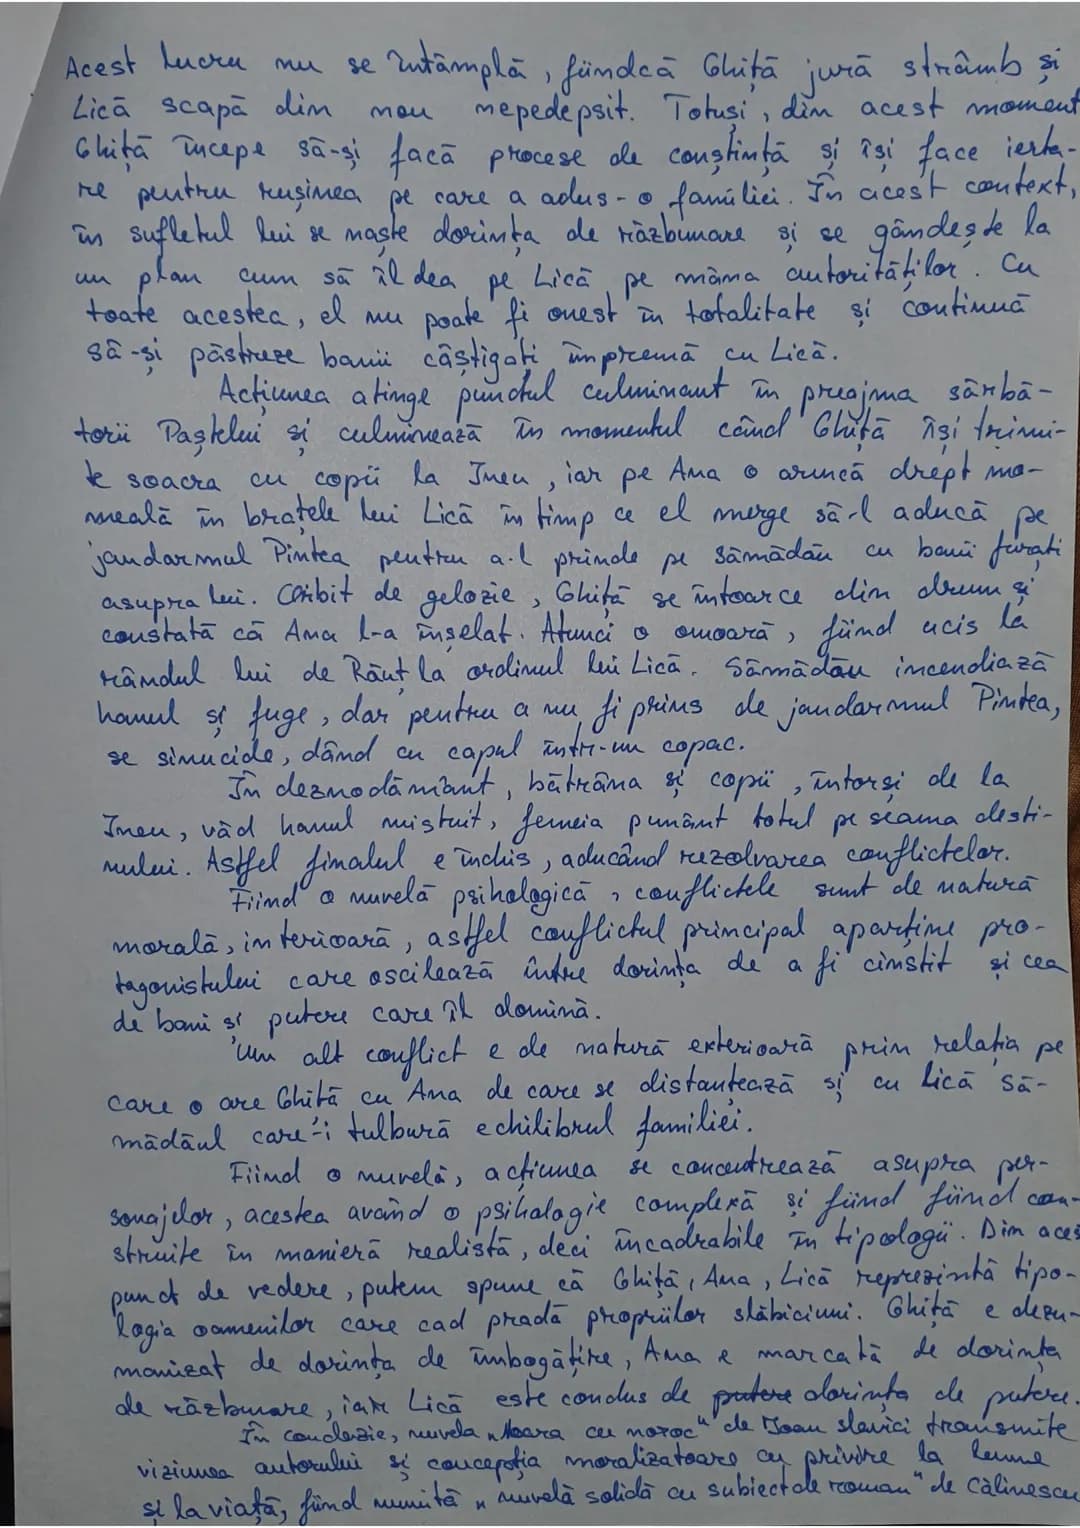 Acest lucru nu se întâmplă, fiindcă Ghiță jură strâmb și
Lică scapă din nou nepedepsit. Totuși, din acest moment
Ghiță începe să-și facă procese de conștință și își face ierta-
re pentru rușinea pe care a adus-o familiei. În acest context,
în sufletul lui se naște dorința de răzbunare și se gândește la
un plan cum să îl dea pe Lică pe mâna autorităților. Cu
toate acestea, el nu poate fi onest în totalitate și continuă
să-și păstreze banii câștigați împreună cu Lică.
Acțiunea atinge punctul culminant în preajma sărbă-
torii Paștelui și culminează în momentul când Ghiță își trimi-
te soacra cu copii la Ineu, iar pe Ana o aruncă drept mo-
meală în brațele lui Lică în timp ce el merge să-l aducă pe
jandarmul Pintea pentru a-l prinde pe Sămădău cu banii furați
asupra lui. Orbit de gelozie, Ghiță se întoarce din drum și
constată că Ana l-a înșelat. Atunci o omoară, fiind ucis la
rândul lui de Răuț la ordinul lui Lică. Sămădău incendiază
hanul și fuge, dar pentru a nu fi prins de jandarmul Pintea,
se sinucide, dând cu capul într-un copac.
În deznodământ, bătrâna și copii, întorși de la
Ineu, văd hanul mistuit, femeia punânt totul pe seama desti-
nului. Astfel finalul e închis, aducând rezolvarea conflictelor.
Fiind o nuvelă psihologică, conflictele sunt de natură
morală, interioară, astfel conflictul principal aparține pro-
tagonistului care oscilează între dorința de a fi cinstit și cea
de bani și putere care îl domină.
Un alt conflict e de natură exterioară prin relația pe
care o are Ghiță cu Ana de care se distanțează și cu Lică Să-
mădăul care-i tulbură echilibrul familiei.
Fiind o nuvelă, acțiunea se concentrează asupra per-
sonajelor, acestea având o psihologie complexă și fiind fiind con-
struite în manieră realistă, deci încadrabile în tipologii. Din aces
punct de vedere, putem spune că Ghiță, Ana, Lică reprezintă tipo-
logia oamenilor care cad pradă propriilor slăbiciuni. Ghiță e dezu-
manizat de dorința de îmbogățire, Ana e marcată de dorința
de răzbunare, iar Lică este condus de putere dorința de putere.
În concluzie, nuvela „Moara cu noroc" de Ioan slavici transmite
viziunea autorului și concepția moralizatoare cu privire la lume
și la viață, fiind numită „nuvelă solidă cu subiect de roman" de Călinescu